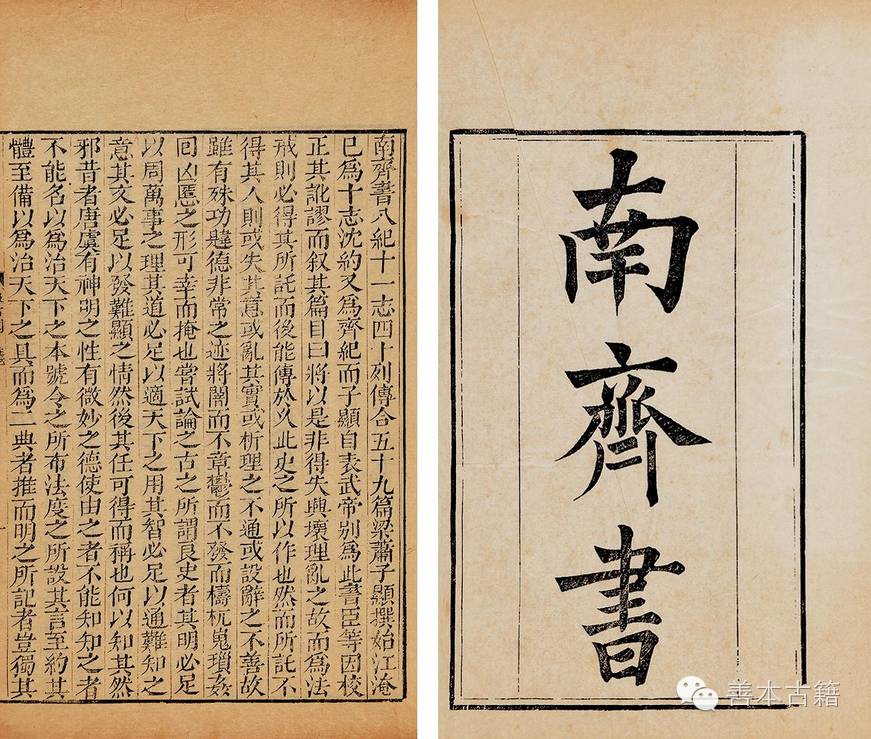 南齊書八紀十一志四十列傳合五十九篇梁蕭子顯撰始江淹
已爲十志沈約又爲齊紀而子顯自表武帝别爲此書臣等因校
正其訛謬而叙其篇目曰將以是非得失興壞理亂之故而爲法
戒則必得其所託而後能傳於久此史之所以作也然而所託不
得其人則或失其意或亂其實或析理之不通或設辭之不善故
雖有殊功韙德非常之迹將闇而不章鬱而不發而檮杌嵬瑣姦
回凶慝之形可幸而掩也嘗試論之古之所謂良史者其明必足
以周萬事之理其道必足以適天下之用其智必足以通難知之
意其文必足以發難顯之情然後其任可得而稱也何以知其然
邪昔者唐虞有神明之性有微妙之德使由之者不能知知之者
不能名以爲治天下之本號令之所布法度之所設其言至約其
體至備以爲治天下之具而爲二典者推而明之所記者豈獨其
南齊書
善本古籍